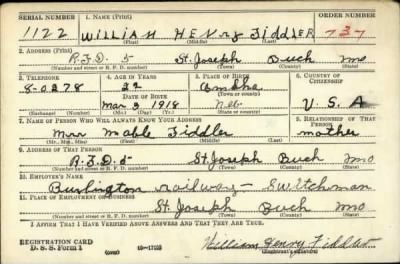 SERIAL NUMBER 1. NAME (Print) ORDER NUMBER
1122 WILLIAM HENRY FIDDLER 737
(First) (Middle) (Last)
2. ADDRESS (Print)
R.F.D. 5 St. Joseph Buch Mo
(Number and street or R. F. D. number) (Town) (County) (State)
3. TELEPHONE 4. AGE IN YEARS 5. PLACE OF BIRTH 6. COUNTRY OF CITIZENSHIP
8-0278 22 Omaha
DATE OF BIRTH (Town or county)
Mar 3 1918 Neb U. S. A
(Exchange) (Number) (Mo.) (Day) (Yr.) (State or country)
7. NAME OF PERSON WHO WILL ALWAYS KNOW YOUR ADDRESS 8. RELATIONSHIP OF THAT PERSON
Mrs Mable Fiddler mother
(Mr., Mrs., Miss) (First) (Middle) (Last)
9. ADDRESS OF THAT PERSON
R.F.D. 5 St Joseph Buch Mo
(Number and street or R. F. D. number) (Town) (County) (State)
10. EMPLOYER'S NAME
Burlington railway - Switchman
11. PLACE OF EMPLOYMENT OR BUSINESS
St. Joseph Buch Mo
(Number and street or R. F. D. number) (Town) (County) (State)
I AFFIRM THAT I HAVE VERIFIED ABOVE ANSWERS AND THAT THEY ARE TRUE.
REGISTRATION CARD William Henry Fiddler
D. S. S. Form 1 (over) (Registrant's signature)